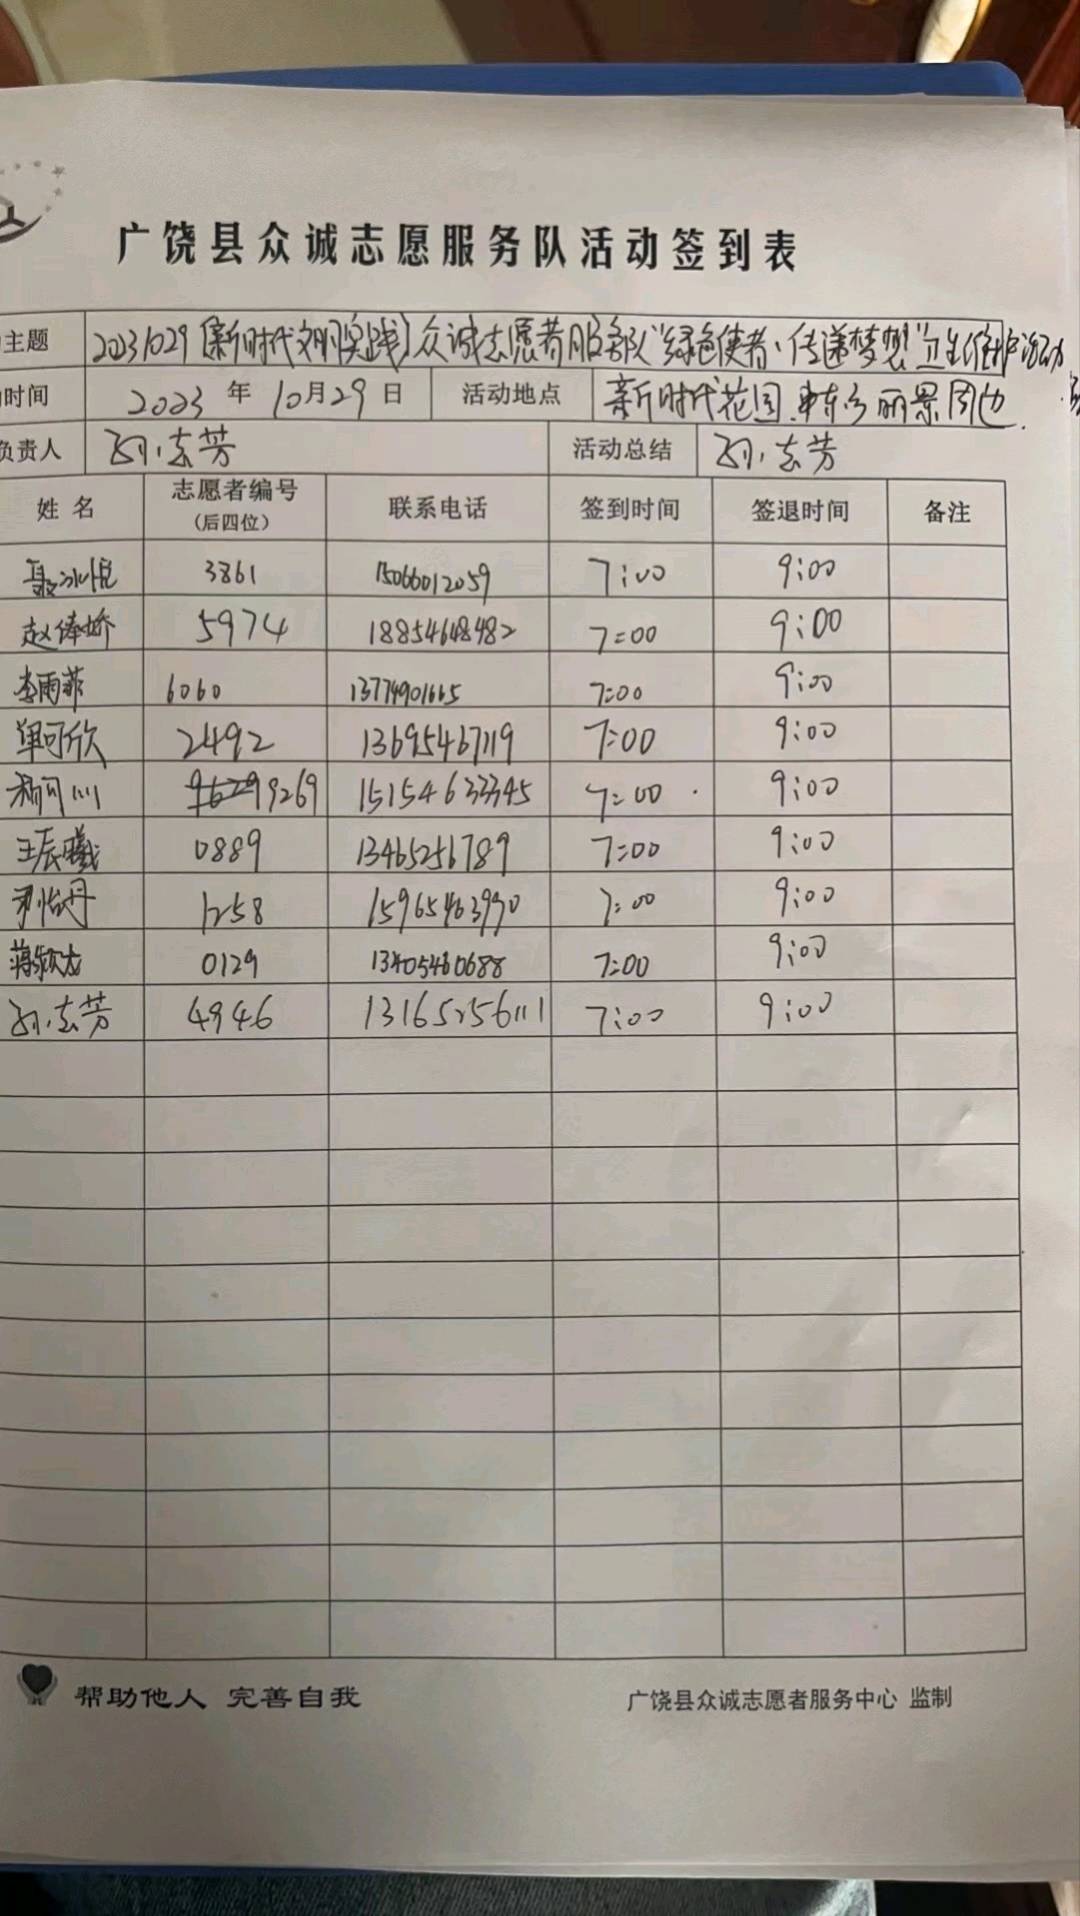 广饶县众诚志愿服务队活动签到表
主题 20231029〔新时代文明实践〕众诚志愿者服务队“绿色使者·传递梦想”卫生维护活动
时间 2023 年 10月29 日 活动地点 新时代花园 丽景周边.
负责人 孙志芳 活动总结 孙志芳
姓 名 志愿者编号 (后四位) 联系电话 签到时间 签退时间 备注
聂冰悦 3861 15066012059 7:00 9:00
赵俸娇 5974 18854648482 7:00 9:00
李雨菲 6060 13774901665 7:00 9:00
单可欣 2492 13695467119 7:00 9:00
9269 15154633345 7:00 9:00
王辰曦 0889 13465256789 7:00 9:00
1258 15965463990 7:00 9:00
0129 13405460688 7:00 9:00
孙志芳 4946 13165256111 7:00 9:00
帮助他人 完善自我
广饶县众诚志愿者服务中心 监制